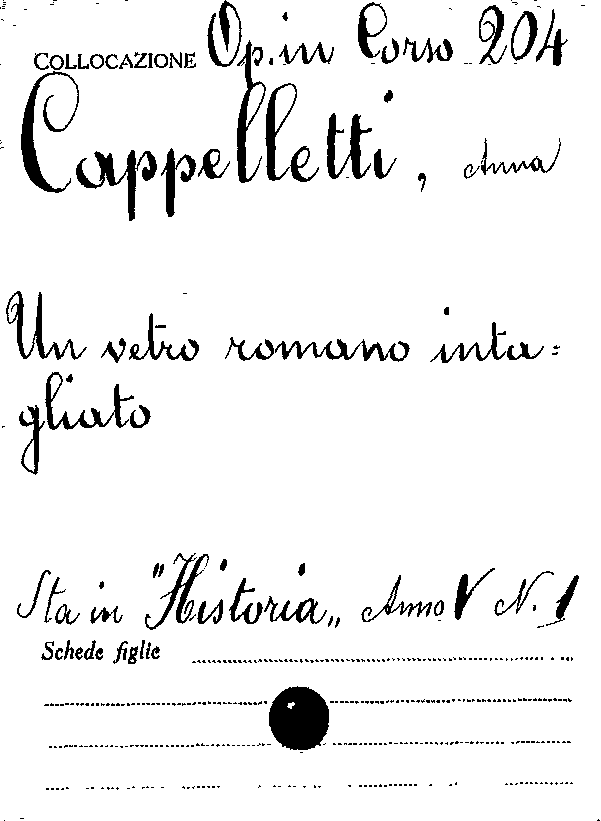 COLLOCAZIONE Op. in Corso 204
Cappelletti, Anna
Un vetro romano inta=
gliato
Sta in "Historia" Anno V N. 1
Schede figlie